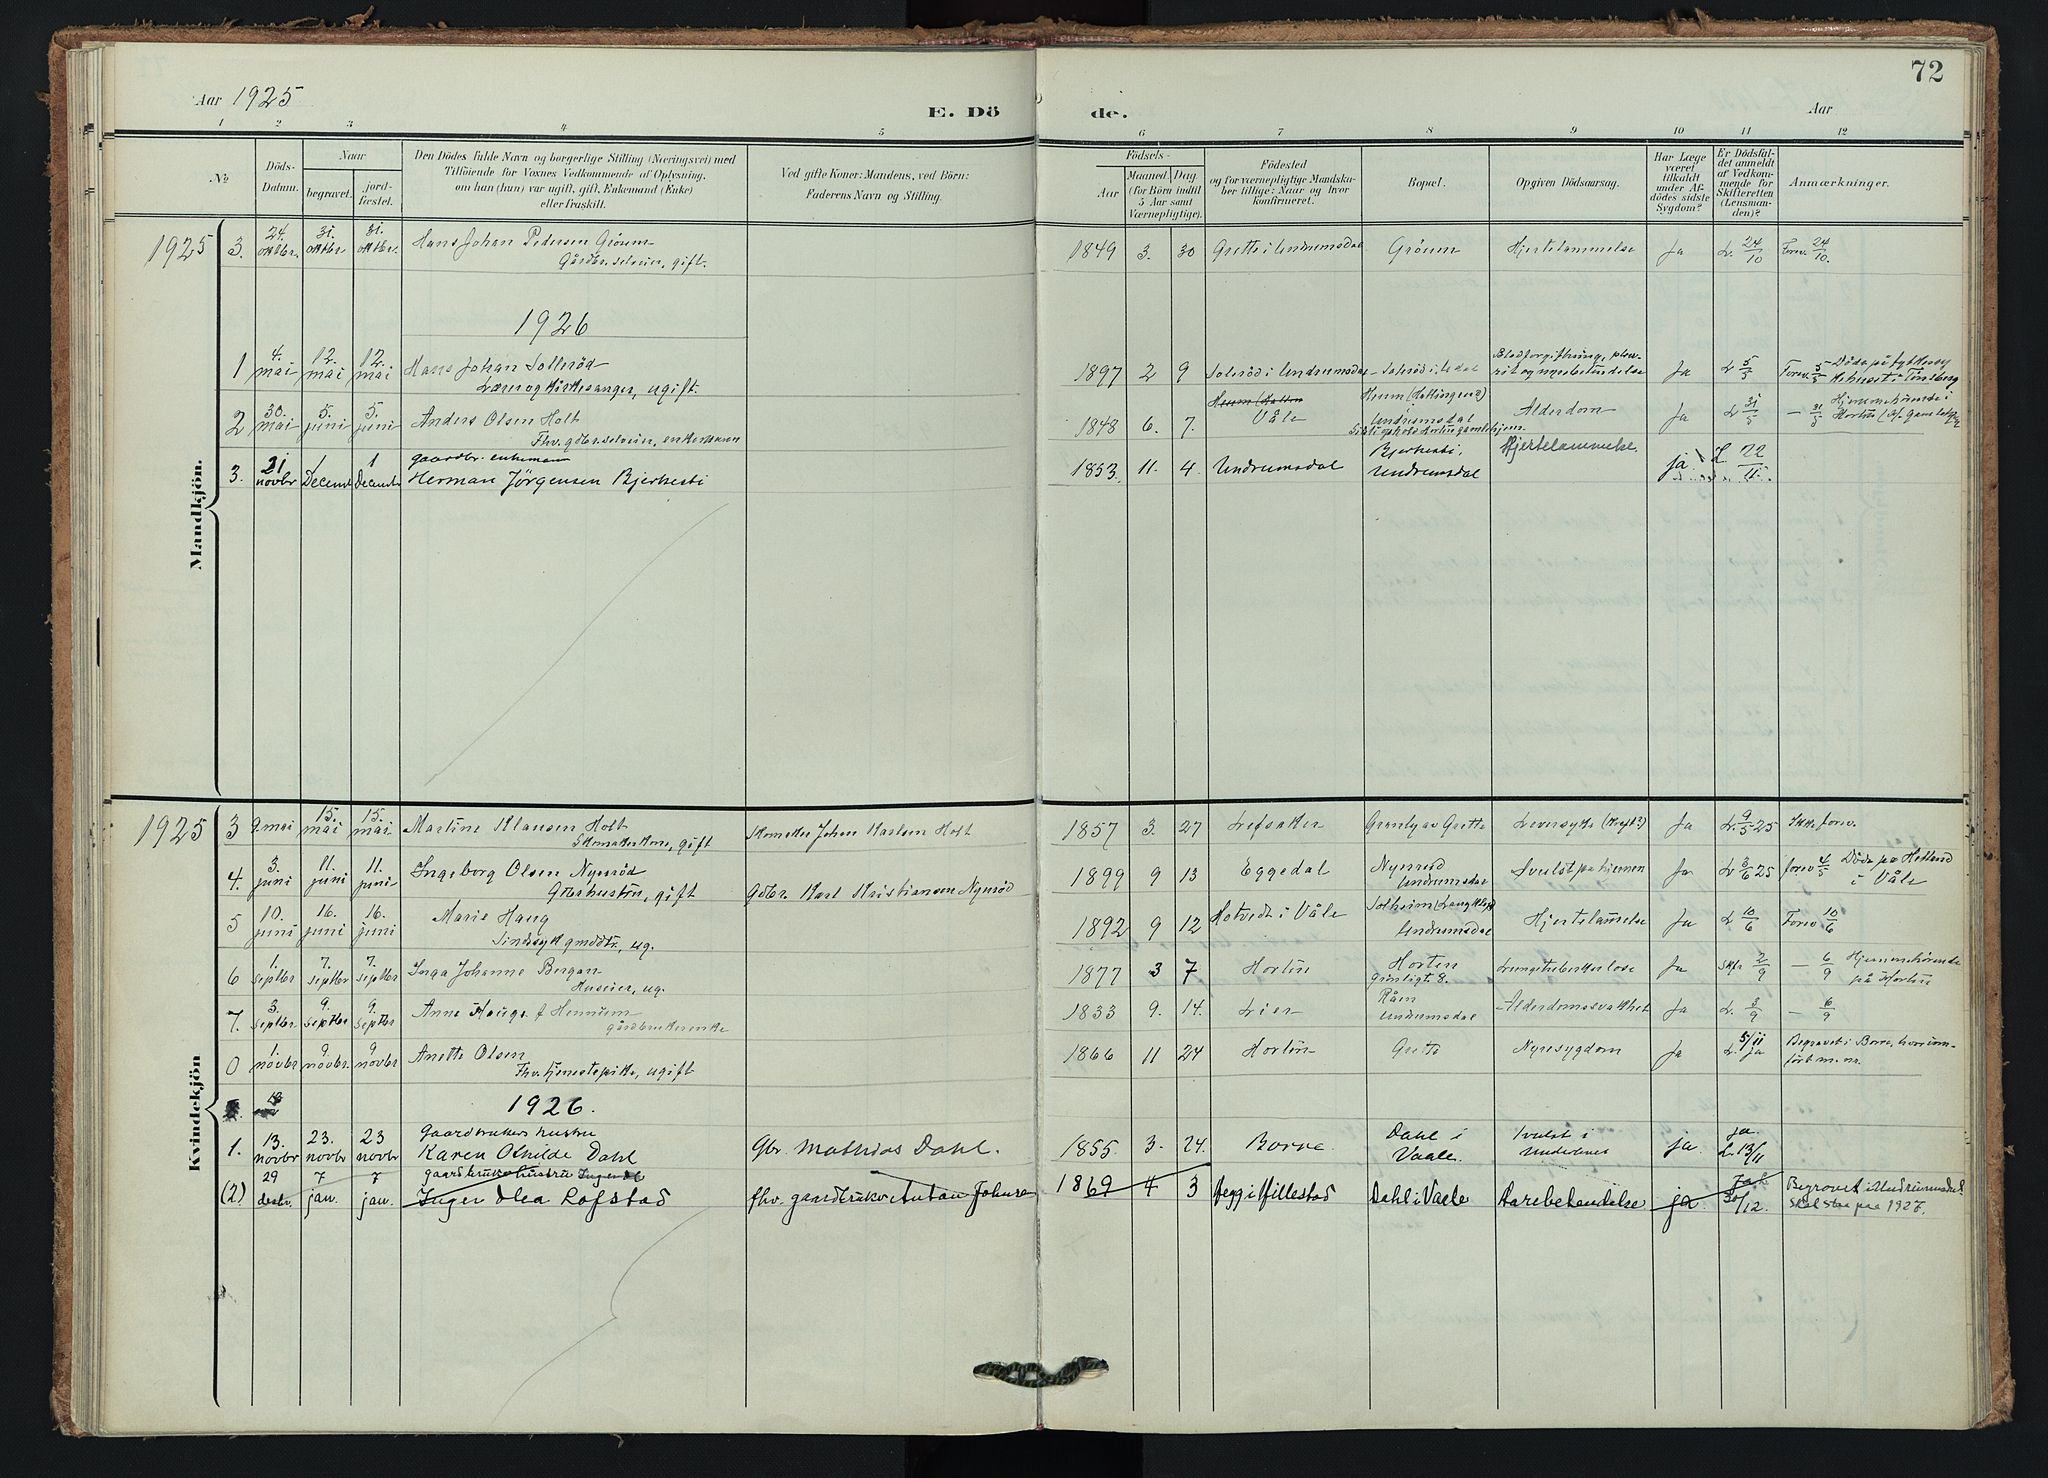 72
Aar 1925
E. Dö
de.
Aar
1 2 3 4 5 6 7 8 9 10 11 12
No
Döds-
Datum.
Naar
begravet.
jord-
fæstet.
Den Dödes fulde Navn og borgerlige Stilling (Næringsvei) med
Tilföiende for Voxnes Vedkommende af Oplysning,
om han (hun) var ugift, gift, Enkemand (Enke)
eller fraskilt.
Ved gifte Koner: Mandens, ved Börn:
Faderens Navn og Stilling.
Födsels-
Aar
Maaned. Dag.
(for Börn indtil
5 Aar samt
Værnepligtige).
Födested
og for værnepligtige Mandska-
ber tillige: Naar og hvor
konfirmeret.
Bopæl.
Opgiven Dödsaarsag.
Har Læge
været
tilkaldt
under Af-
dödes sidste
Sygdom?
Er Dödsfal-
det anmeldt
af Vedkom-
mende for
Skifteretten
(Lensman-
den)?
Anmærkninger.
Mandkjön.
1925 3. 24. oktbr. 31. oktbr 31. oktbr. Hans Johan Pedersen Gröum
Gårdbr. selveier, gift.
1849 3. 30 Grette i Undrumsdal Gröum Hjertelammelse Ja L. 24/10 Forev. 24/10.
1926
1 4. mai 12. mai 12. mai Hans Johan Solleröd
Lærer og kirkesanger, ugift.
1897 2 9 Soleröd i Undrumsdal Soleröd i Udal Blodforgiftning, pleu-
rit og nyrebetændelse Ja L 5/5 Forev. 5/5 Döde på
i Tönsberg
2 30. mai 5. juni 5. juni Anders Olsen Holt
Fhv. gdbr. selveier, enkemann
1848 6. 7. Våle Undrumsdal
Alderdom Ja L 31/5 — 31/5 Hjemmehörende i
3. 21 novbr 1 Decembr 1 Decembr gaardbr. enkemann
Herman Jörgensen Bjerkesti
1853. 11. 4. Undrumsdal Bjerkesti,
Undrumsdal Hjertelammelse. ja L. 22/11
Kvindekjön
1925 3 9. mai 15. mai 15. mai Martine Klausen Holt
Skomakerkone, gift Skomaker Johan Karlsen Holt
1857 3. 27 Lefsaker Granly av Grette Leversyke (Kreft?) Ja L. 9/5 25 Ikke forev.
4. 3. juni 11. juni 11. juni Ingeborg Olsen Nyeröd
Gdbr. hustru, gift Gdbr. Karl Kristiansen Nyeröd
1899 9 13 Eggedal Nyeröd
Undrumsdal Svulst på hjernen Ja L 3/6 25 forev 4/5 Döde på
i Våle
5 10. juni 16. juni 16. juni Marie Haug
Sindssyk ug.
1892 9 12 Hotvedt i Våle Solheim
Undrumsdal Hjertelammelse Ja L. 10/6 Forev 10/6
6 1. septbr 7. septbr 7. septbr Inga Johanne Bergan
Huseier, ug.
1877 3 7 Horten Horten
8. Lungetuberkulose Ja Skfr 2/9 — 6/9 Hjemmehörende
på Horten
7. 3. septbr. 9. septbr 9. septbr Anne Hauge f Hennum
gårdbrukerenke
1833 9. 14. Lier Råen
Undrumsdal Alderdomssvakhet Ja L. 3/9 — 6/9
0 1. novbr 9 novbr. 9 novbr. Anette Olsen
Fhv. tjenestepike, ugift
1866 11 24 Horten Grette Nyresygdom Ja L. 5/11 ja Begravet i Borre, hvor inn-
fört m. nr.
1926.
1. 13. novbr 23. novbr 23 novbr Gaardbrukers hustru
Karen Othilde Dahl Gbr. Mathias Dahl.
1855 3. 24. Borre Dahl i
Vaale. Svulst i
Underlivet ja. ja L. 13/11
(2) 29 desbr. 7 jan. 7 jan. gaardbrukerhustru
Inger Olea Rofstad fhv. gaardbruker Anton Johnsen
1869 4 3 Hegg i Hillestad Dahl i Vaale Aarebetendelse ja Ja 30/12. Begravet i Undrumsdal.
Skal staa paa 1927.